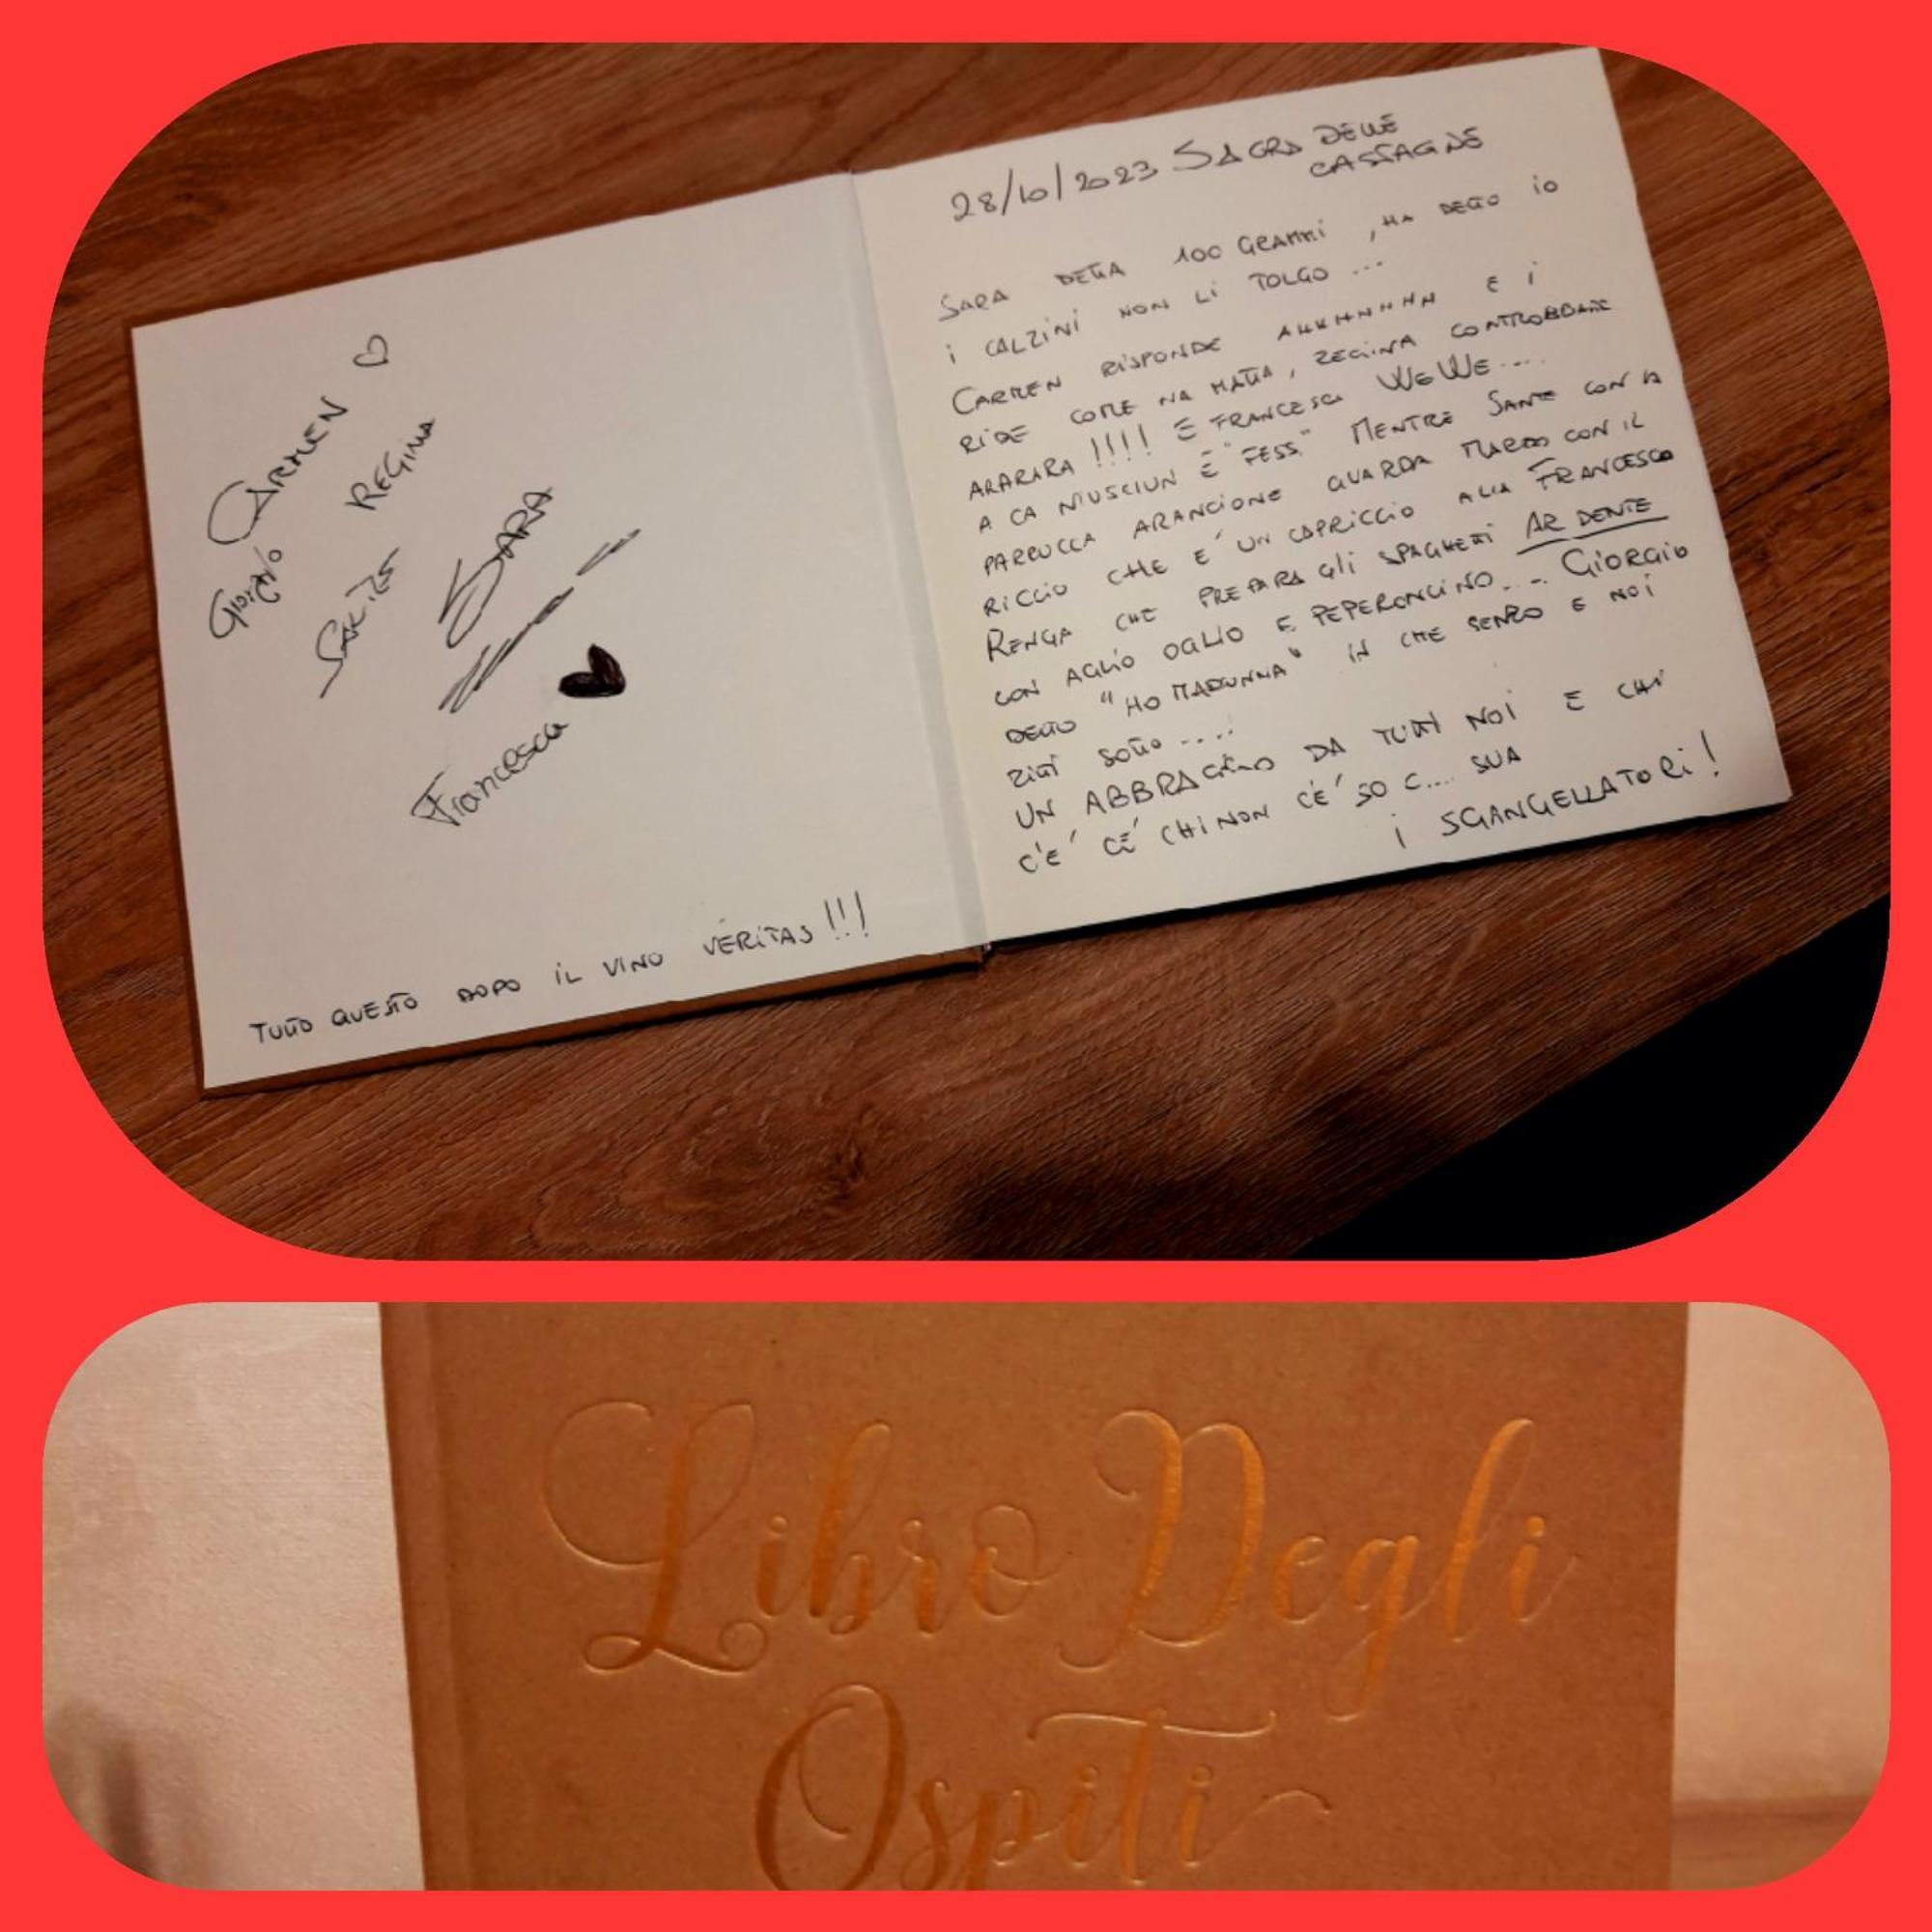 CARMEN
GIORGIO
REGINA
SARA
Francesca
TUTTO QUESTO DOPO IL VINO VERITAS!!!
28/10/2023 SAGRA DELLE
CASTAGNE
SARA DETTA 100 GRAMMI, HA DETTO IO
I CALZINI NON LI TOLGO ...
CARMEN RISPONDE AHHHHHHH E
RIDE COME NA MATTA, REGINA CONTROBBATTE
ARARARA !!!! E FRANCESCA WEWE....
A CA NIUSCIUN È "FESS" MENTRE SANTE CON LA
PARRUCCA ARANCIONE GUARDA MARCO CON IL
RICCIO CHE E' UN CAPRICCIO ALLA FRANCESCO
RENGA CHE PREPARA GLI SPAGHETTI AR DENTE
CON AGLIO OGLIO E PEPERONCINO... GIORGIO
DETTO "HO MADUNNA" IN CHE SENSO E NOI
TUTTI SOTTO ....
UN ABBRACCIO DA TUTTI NOI E CHI
C'E' CE' CHI NON C'E' SO C.... SUA
I SGANGELLATORI!
Libro Degli
Ospiti